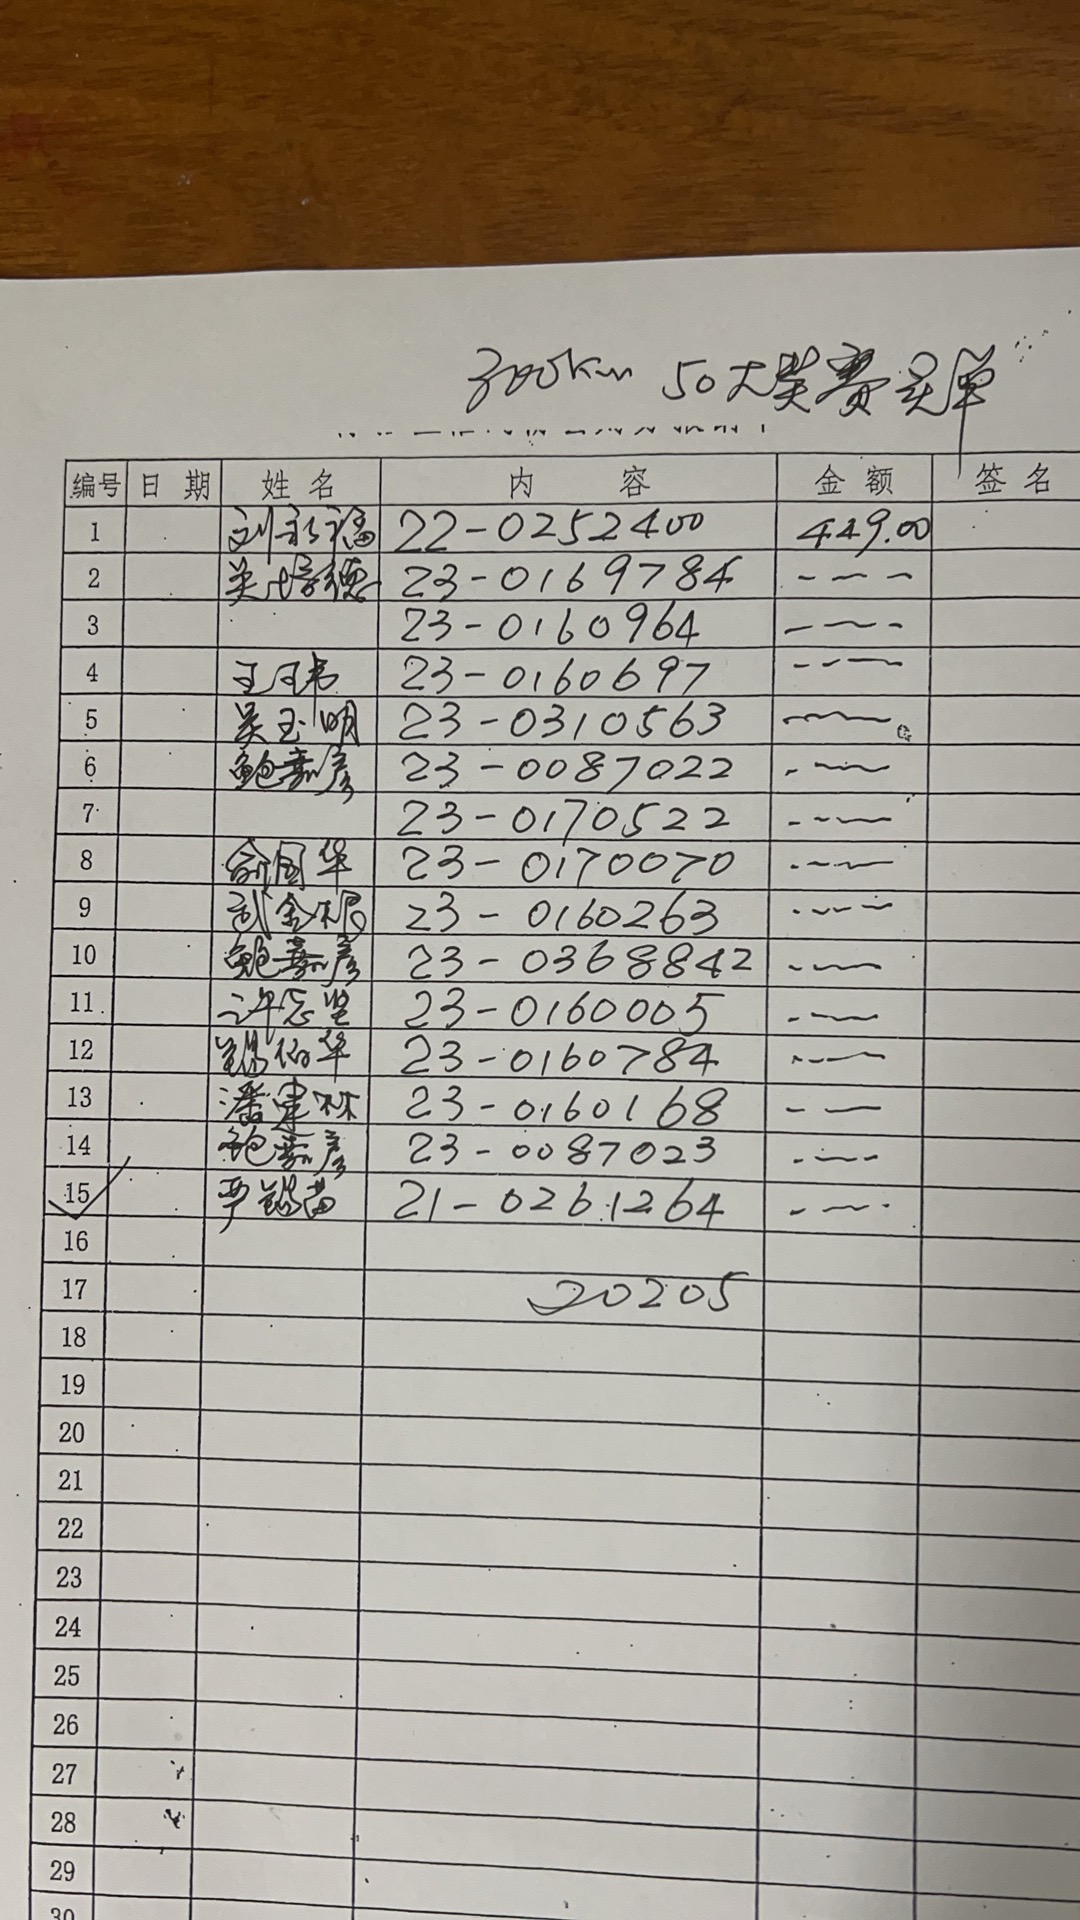 300km 50大奖赛买单
编号 日期 姓名 内容 金额 签名
1 刘永福 22-0252400 449.00
2 吴培德 23-0169784 - - -
3 23-0160964 - - -
4 23-0160697 - - -
5 吴玉明 23-0310563
6 鲍嘉彦 23-0087022
7 23-0170522
8 俞国华 23-0170070
9 武金根 23-0160263
10 鲍嘉彦 23-0368842
11 许忠坚 23-0160005
12 23-0160784
13 潘建林 23-0160168
14 鲍嘉彦 23-0087023
15 21-0261264
16
17 20205
18
19
20
21
22
23
24
25
26
27
28
29
30